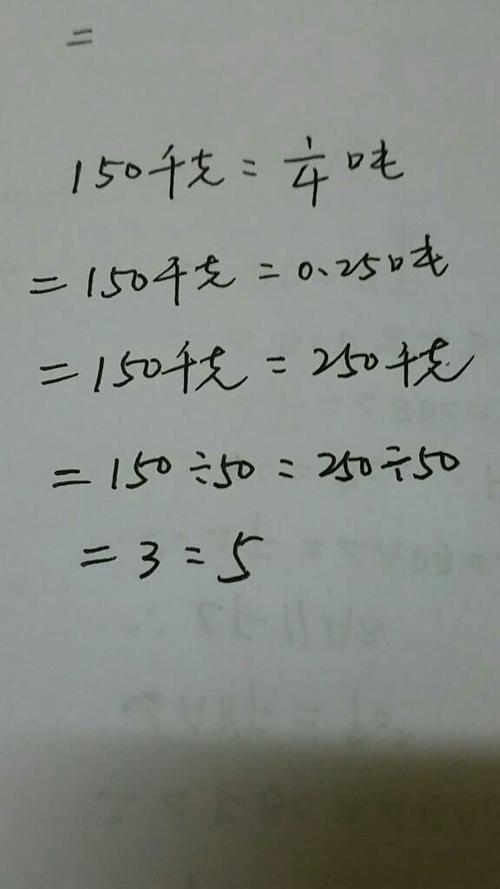 =
150千克=1/4吨
=150千克=0.25吨
=150千克=250千克
=150÷50=250÷50
=3=5